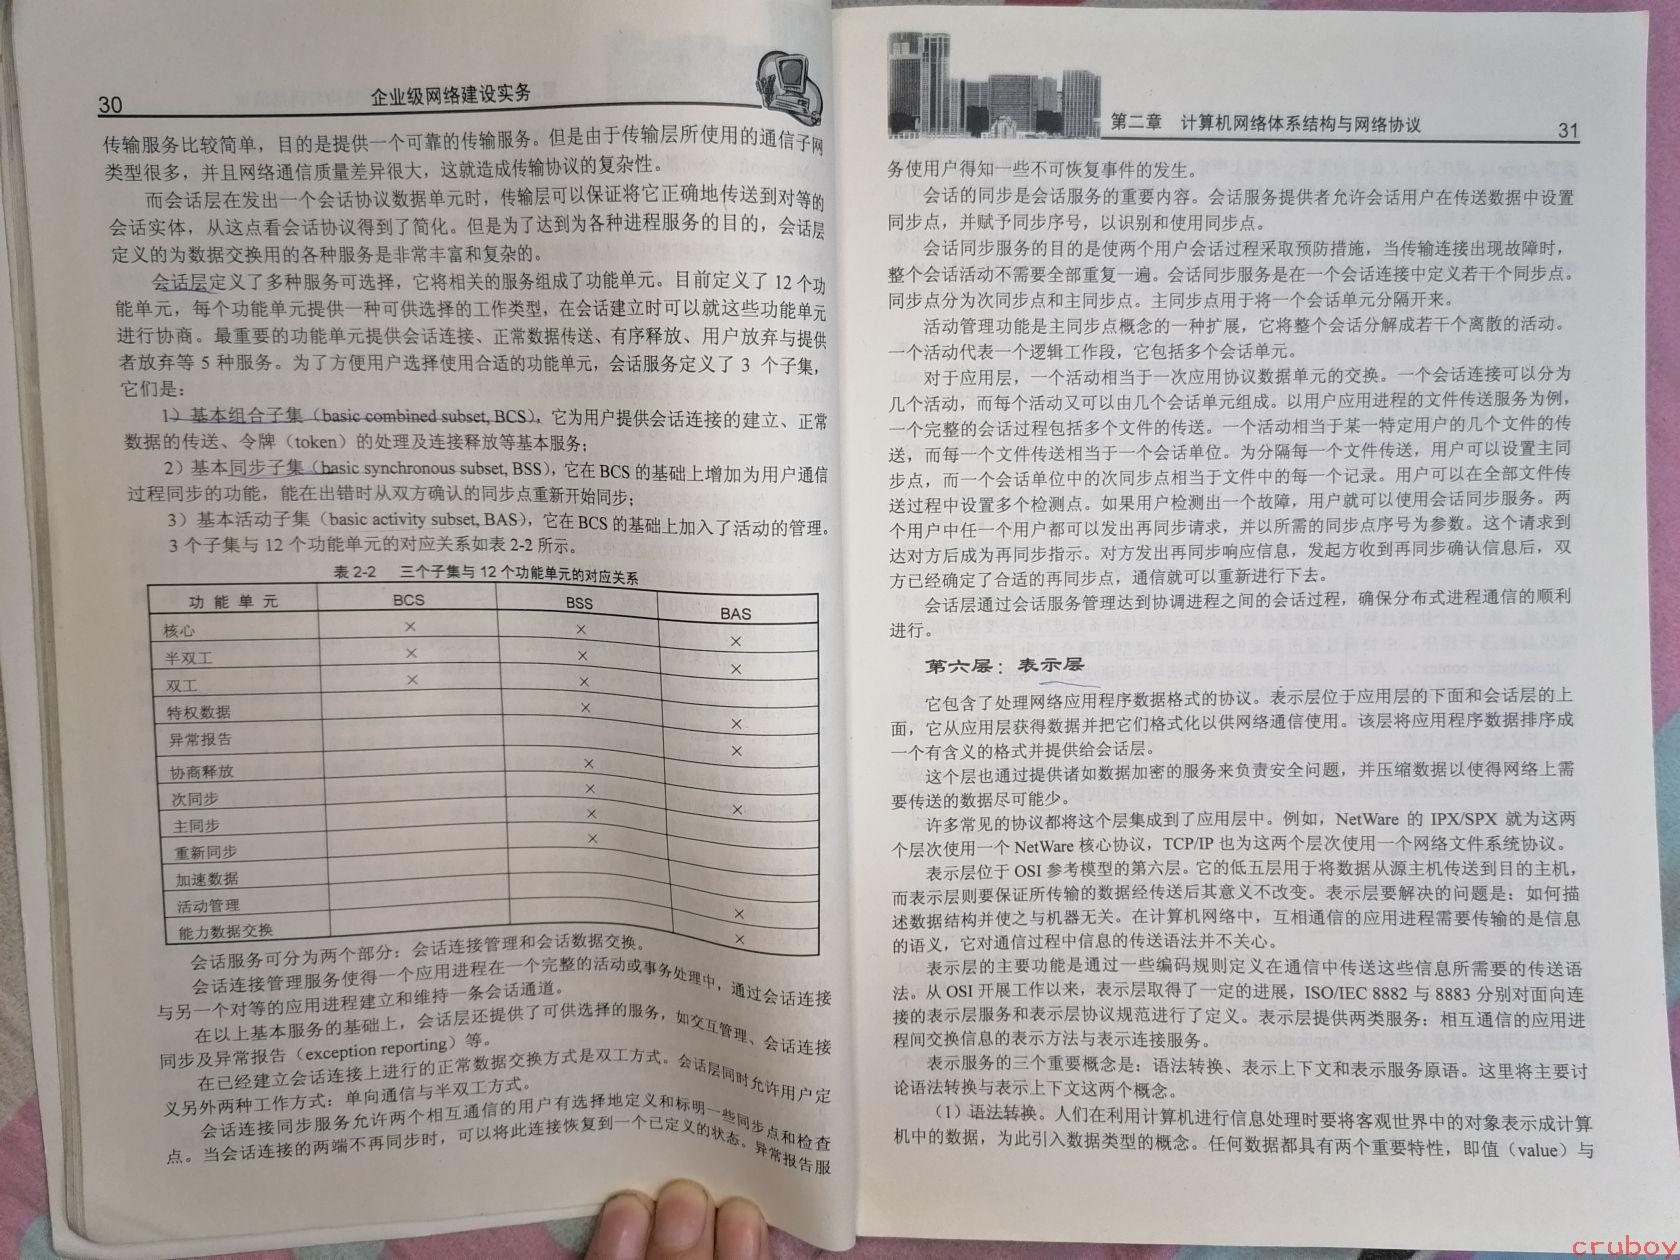 30
企业级网络建设实务
传输服务比较简单，目的是提供一个可靠的传输服务。但是由于传输层所使用的通信子网
类型很多，并且网络通信质量差异很大，这就造成传输协议的复杂性。
而会话层在发出一个会话协议数据单元时，传输层可以保证将它正确地传送到对等的
会话实体，从这点看会话协议得到了简化。但是为了达到为各种进程服务的目的，会话层
定义的为数据交换用的各种服务是非常丰富和复杂的。
会话层定义了多种服务可选择，它将相关的服务组成了功能单元。目前定义了 12 个功
能单元，每个功能单元提供一种可供选择的工作类型，在会话建立时可以就这些功能单元
进行协商。最重要的功能单元提供会话连接、正常数据传送、有序释放、用户放弃与提供
者放弃等 5 种服务。为了方便用户选择使用合适的功能单元，会话服务定义了 3 个子集，
它们是：
1）基本组合子集（basic combined subset, BCS），它为用户提供会话连接的建立、正常
数据的传送、令牌（token）的处理及连接释放等基本服务；
2）基本同步子集（basic synchronous subset, BSS），它在 BCS 的基础上增加为用户通信
过程同步的功能，能在出错时从双方确认的同步点重新开始同步；
3）基本活动子集（basic activity subset, BAS），它在 BCS 的基础上加入了活动的管理。
3 个子集与 12 个功能单元的对应关系如表 2-2 所示。
表 2-2 三个子集与 12 个功能单元的对应关系
功能单元 BCS BSS BAS
核心 × × ×
半双工 × × ×
双工 × ×
特权数据 × ×
异常报告 ×
协商释放 ×
次同步 × ×
主同步 ×
重新同步 ×
加速数据
活动管理 ×
能力数据交换 ×
会话服务可分为两个部分：会话连接管理和会话数据交换。
会话连接管理服务使得一个应用进程在一个完整的活动或事务处理中，通过会话连接
与另一个对等的应用进程建立和维持一条会话通道。
在以上基本服务的基础上，会话层还提供了可供选择的服务，如交互管理、会话连接
同步及异常报告（exception reporting）等。
在已经建立会话连接上进行的正常数据交换方式是双工方式。会话层同时允许用户定
义另外两种工作方式：单向通信与半双工方式。
会话连接同步服务允许两个相互通信的用户有选择地定义和标明一些同步点和检查
点。当会话连接的两端不再同步时，可以将此连接恢复到一个已定义的状态。异常报告服
第二章 计算机网络体系结构与网络协议
31
务使用户得知一些不可恢复事件的发生。
会话的同步是会话服务的重要内容。会话服务提供者允许会话用户在传送数据中设置
同步点，并赋予同步序号，以识别和使用同步点。
会话同步服务的目的是使两个用户会话过程采取预防措施，当传输连接出现故障时，
整个会话活动不需要全部重复一遍。会话同步服务是在一个会话连接中定义若干个同步点。
同步点分为次同步点和主同步点。主同步点用于将一个会话单元分隔开来。
活动管理功能是主同步点概念的一种扩展，它将整个会话分解成若干个离散的活动。
一个活动代表一个逻辑工作段，它包括多个会话单元。
对于应用层，一个活动相当于一次应用协议数据单元的交换。一个会话连接可以分为
几个活动，而每个活动又可以由几个会话单元组成。以用户应用进程的文件传送服务为例，
一个完整的会话过程包括多个文件的传送。一个活动相当于某一特定用户的几个文件的传
送，而每一个文件传送相当于一个会话单位。为分隔每一个文件传送，用户可以设置主同
步点，而一个会话单位中的次同步点相当于文件中的每一个记录。用户可以在全部文件传
送过程中设置多个检测点。如果用户检测出一个故障，用户就可以使用会话同步服务。两
个用户中任一个用户都可以发出再同步请求，并以所需的同步点序号为参数。这个请求到
达对方后成为再同步指示。对方发出再同步响应信息，发起方收到再同步确认信息后，双
方已经确定了合适的再同步点，通信就可以重新进行下去。
会话层通过会话服务管理达到协调进程之间的会话过程，确保分布式进程通信的顺利
进行。
第六层：表示层
它包含了处理网络应用程序数据格式的协议。表示层位于应用层的下面和会话层的上
面，它从应用层获得数据并把它们格式化以供网络通信使用。该层将应用程序数据排序成
一个有含义的格式并提供给会话层。
这个层也通过提供诸如数据加密的服务来负责安全问题，并压缩数据以使得网络上需
要传送的数据尽可能少。
许多常见的协议都将这个层集成到了应用层中。例如，NetWare 的 IPX/SPX 就为这两
个层次使用一个 NetWare 核心协议，TCP/IP 也为这两个层次使用一个网络文件系统协议。
表示层位于 OSI 参考模型的第六层。它的低五层用于将数据从源主机传送到目的主机，
而表示层则要保证所传输的数据经传送后其意义不改变。表示层要解决的问题是：如何描
述数据结构并使之与机器无关。在计算机网络中，互相通信的应用进程需要传输的是信息
的语义，它对通信过程中信息的传送语法并不关心。
表示层的主要功能是通过一些编码规则定义在通信中传送这些信息所需要的传送语
法。从 OSI 开展工作以来，表示层取得了一定的进展，ISO/IEC 8882 与 8883 分别对面向连
接的表示层服务和表示层协议规范进行了定义。表示层提供两类服务：相互通信的应用进
程间交换信息的表示方法与表示连接服务。
表示服务的三个重要概念是：语法转换、表示上下文和表示服务原语。这里将主要讨
论语法转换与表示上下文这两个概念。
（1）语法转换。人们在利用计算机进行信息处理时要将客观世界中的对象表示成计算
机中的数据，为此引入数据类型的概念。任何数据都具有两个重要特性，即值（value）与
cruboy